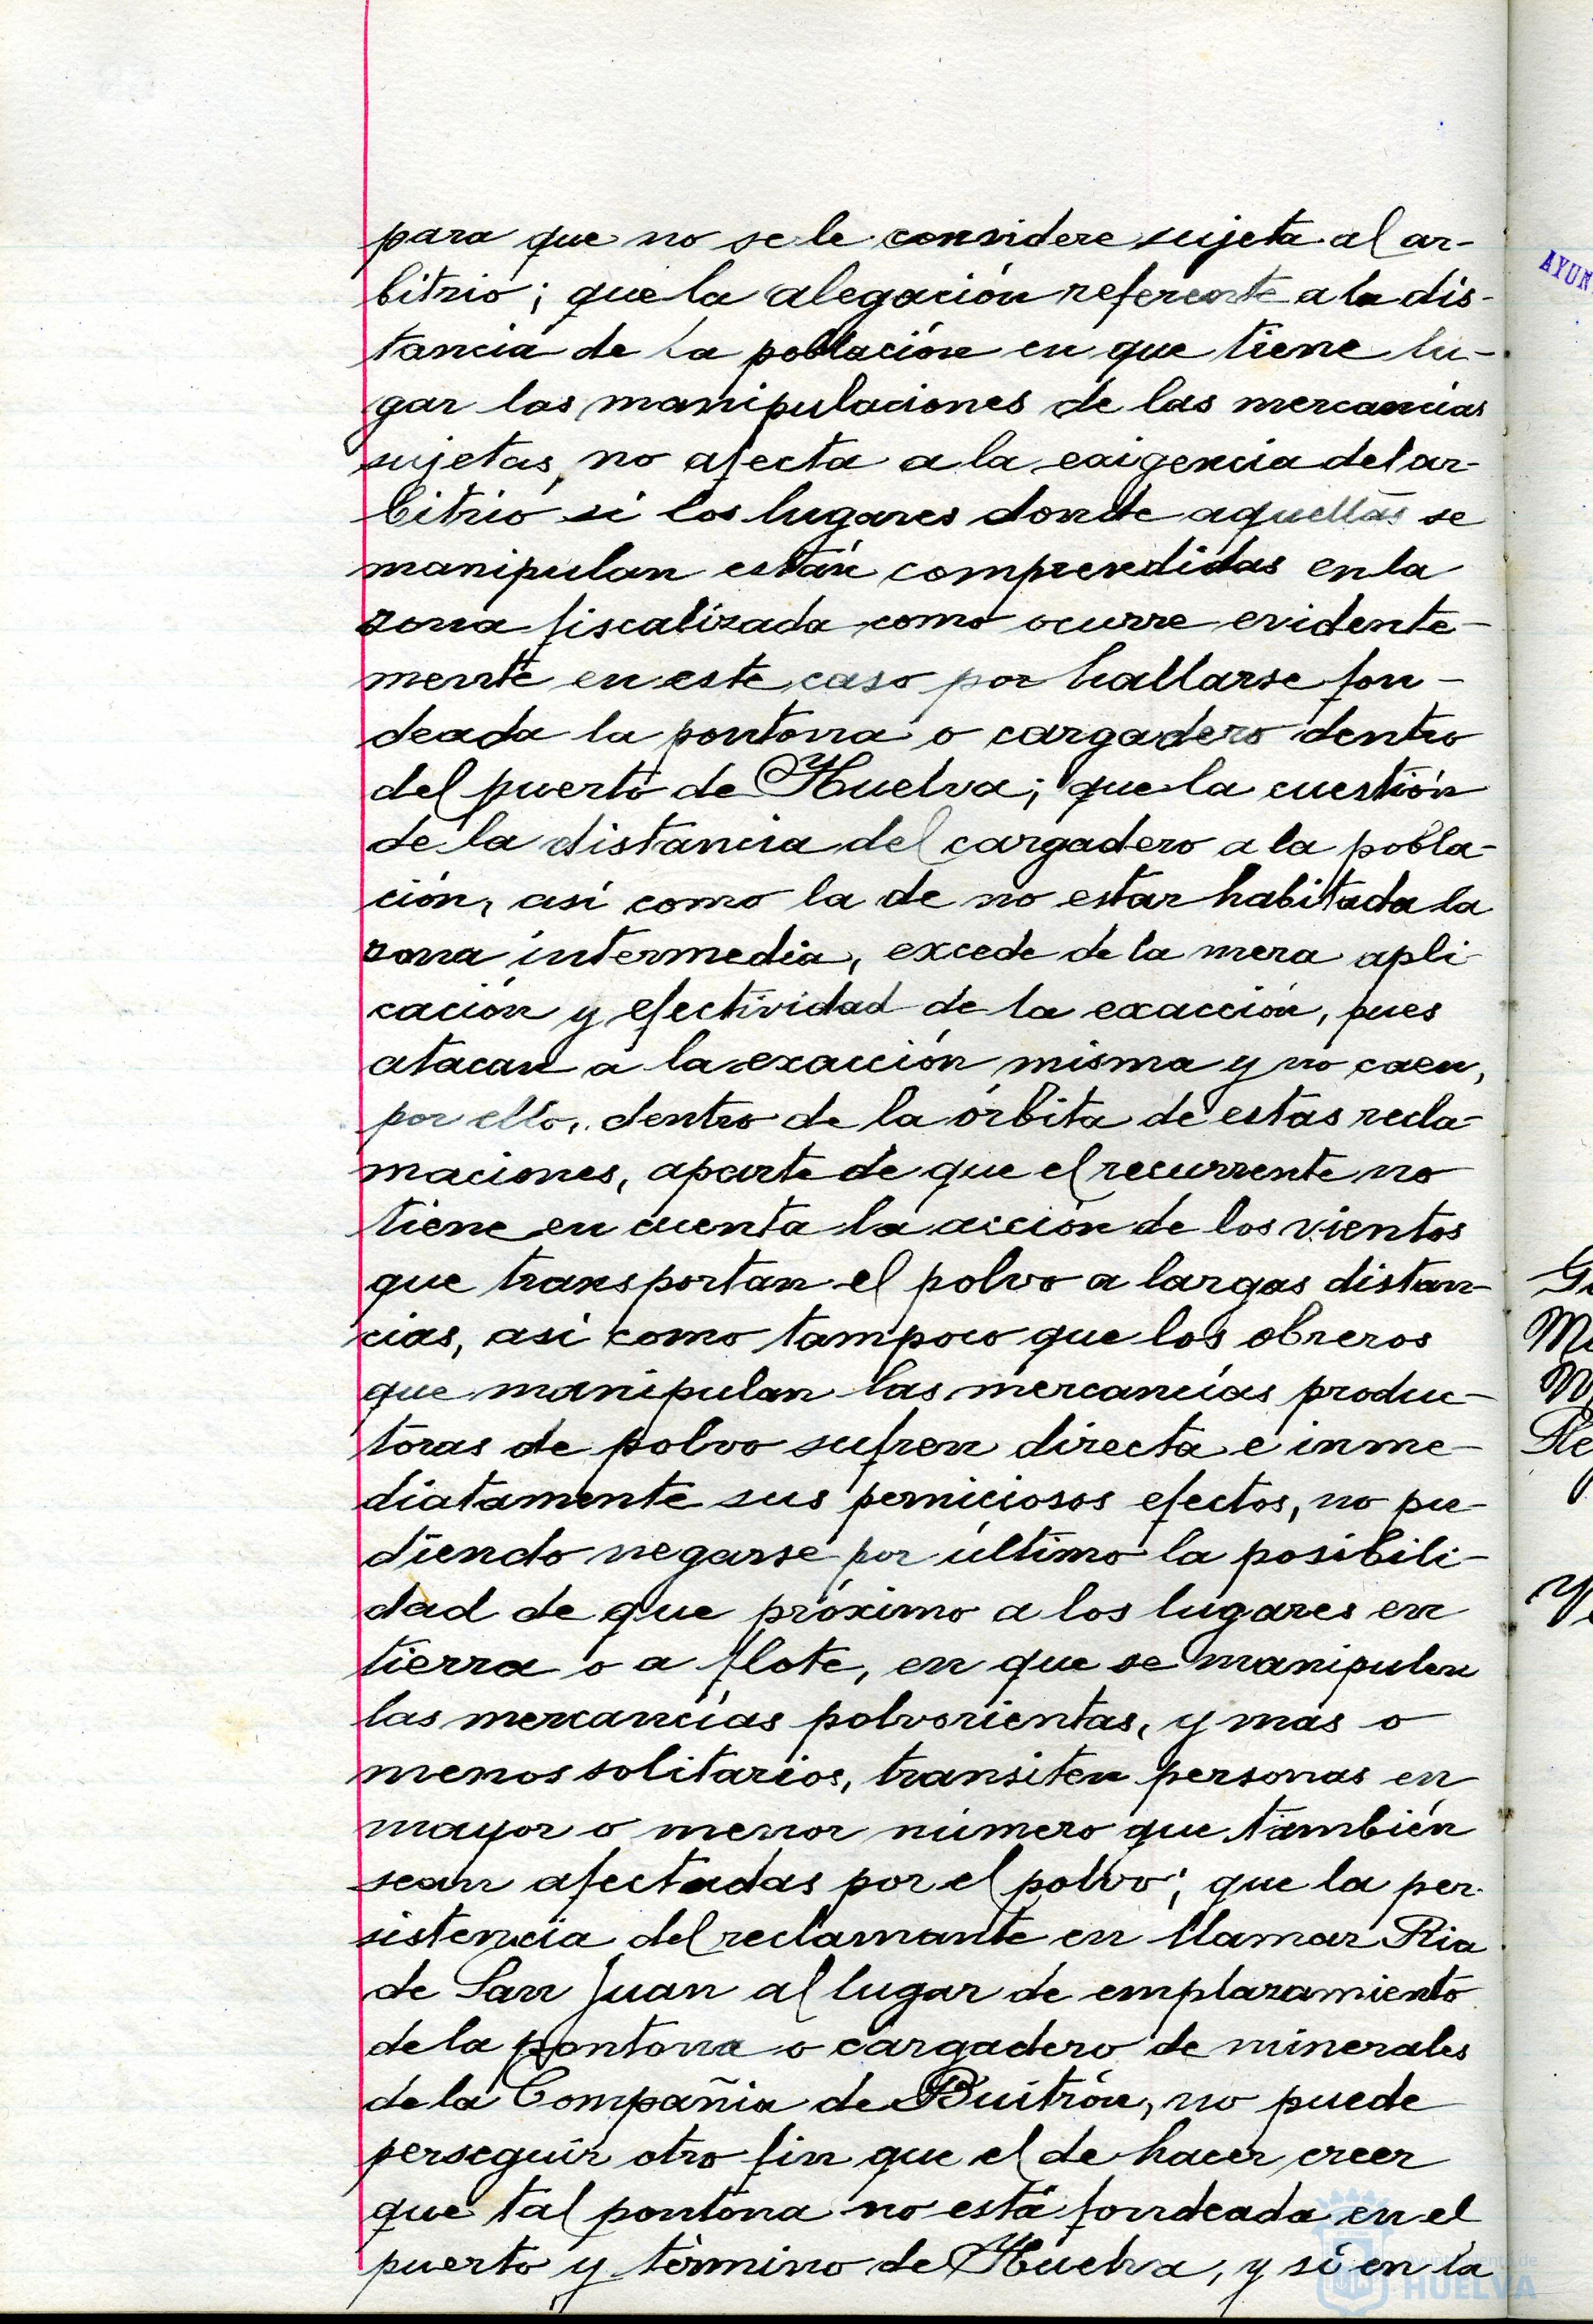 para que no se le considere sujeta al ar-
bitrio; que la alegación referente a la dis-
tancia de la población en que tiene lu-
gar las manipulaciones de las mercancias
sujetas, no afecta a la exigencia del ar-
bitrio si los lugares donde aquellas se
manipulan están comprendidas en la
zona fiscalizada como ocurre evidente-
mente en este caso por hallarse fon-
deada la pontona o cargadero dentro
del puerto de Huelva; que la cuestión
de la distancia del cargadero a la pobla-
ción, asi como la de no estar habitada la
zona intermedia, excede de la mera apli
cación y efectividad de la exacción, pues
atacan a la exacción misma y no caen,
por ello, dentro de la órbita de estas recla-
maciones, aparte de que el recurrente no
tiene en cuenta la acción de los vientos
que transportan el polvo a largas distan-
cias, asi como tampoco que los obreros
que manipulan las mercancias produc-
toras de polvo sufren directa e inme-
diatamente sus perniciosos efectos, no pu-
diendo negarse por último la posibili-
dad de que próximo a los lugares en
tierra o a flote, en que se manipulen
las mercancias polvorientas, y más o
menos solitarios, transiten personas en
mayor o menor número que también
sean afectadas por el polvo; que la per-
sistencia del reclamante en llamar Ria
de San Juan al lugar de emplazamiento
de la pontona o cargadero de minerales
de la Compañia de Buitrón, no puede
perseguir otro fin que el de hacer creer
que tal pontona no está fondeada en el
puerto y término de Huelva, y si en la
AYUN
HUELVA